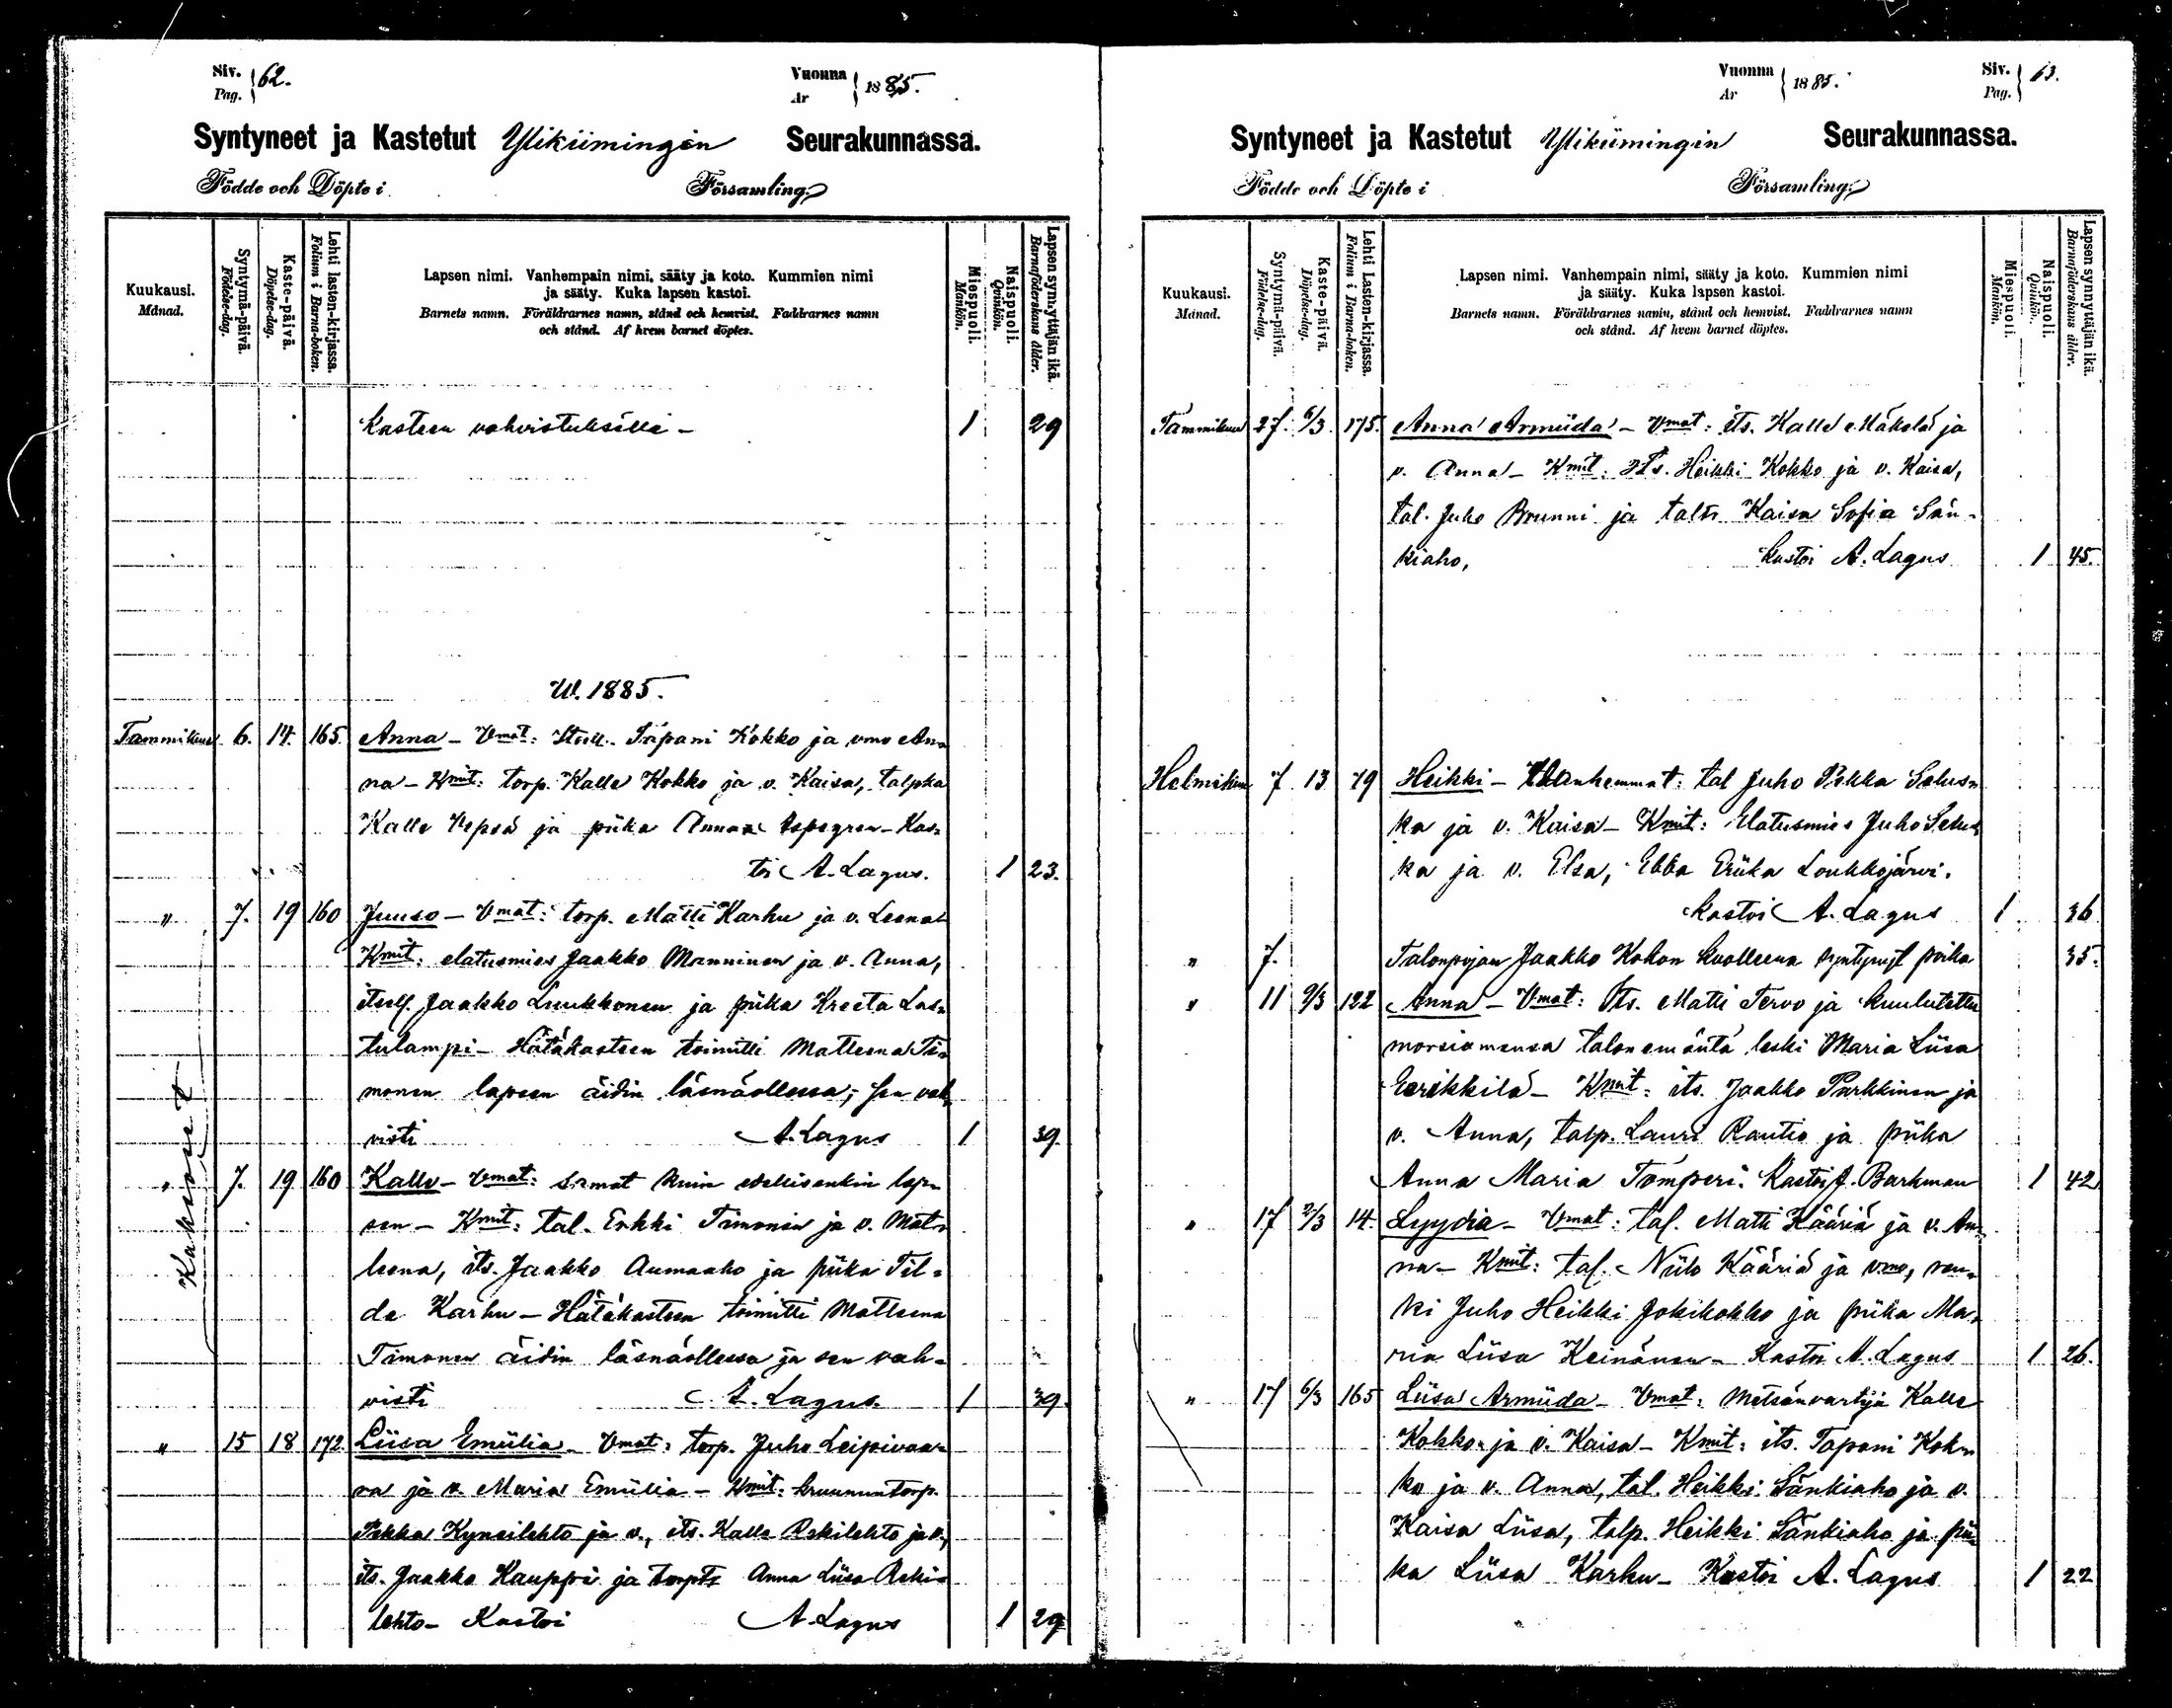 Siv. Pag. 62.
Vuonna År 1885.
Syntyneet ja Kastetut Ylikiimingin Seurakunnassa.
Födde och Döpte i Församling.
Kuukausi. Månad.
Syntymä-päivä. Födelse-dag.
Kaste-päivä. Döpelse-dag.
Lehti lasten-kirjassa. Folium i Barna-boken.
Lapsen nimi. Vanhempain nimi, sääty ja koto. Kummien nimi
ja sääty. Kuka lapsen kastoi.
Barnets namn. Föräldrarnes namn, stånd och hemvist. Faddrarnes namn
och stånd. Af hvem barnet döptes.
Miespuoli. Mankön.
Naispuoli. Qvinkön.
Lapsen synnyttäjän ikä. Barnaföderskans ålder.
Kasteen vahvistuksella - 1 29
W. 1885.
Tammikuu 6. 14. 165. Anna - Vmat: Tapani Kokko ja vmo An-
na - Kmit: torp. Kalle Kokko ja v. Kaisa, talpka
Kalle Kepsä ja piika Anna - Kas-
toi A. Lagus. 1 23.
" 7. 19 160 Juuso - Vmat: torp. Matti Karhu ja v. Leena
Kmit: elatusmies Jaakko Manninen ja v. Anna,
itsell. Jaakko Luukkonen ja piika Kreeta Las-
tulampi - Hätäkasteen toimitti Matleena Ti-
monen lapsen äidin läsnäollessa; sen vah-
visti A. Lagus 1 39.
" 7. 19 160 Kalle - Vmat: samat kuin edellisenkin lap-
sen - Kmit: tal. Erkki Timonen ja v. Mat-
leena, its. Jaakko Aumaaho ja piika Til-
da Karhu - Hätäkasteen toimitti Matleena
Timonen äidin läsnäollessa ja sen vah-
visti A. Lagus. 1 39.
Kaksoset
" 15 18 172 Liisa Emiilia - Vmat: torp. Juho Leipivaa-
ra ja v. Maria Emiilia - Kmit: kruununtorp.
Pekka Kynsilehto ja v., its. Kalle Rekilehto ja v.,
its. Jaakko Kauppi ja torptr Anna Liisa Reki-
lehto - Kastoi A. Lagus 1 29
Vuonna År 1885.
Siv. Pag. 63.
Syntyneet ja Kastetut Ylikiimingin Seurakunnassa.
Födde och Döpte i Församling.
Kuukausi. Månad.
Syntymä-päivä. Födelse-dag.
Kaste-päivä. Döpelse-dag.
Lehti Lasten-kirjassa. Folium i Barna-boken.
Lapsen nimi. Vanhempain nimi, sääty ja koto. Kummien nimi
ja sääty. Kuka lapsen kastoi.
Barnets namn. Föräldrarnes namn, stånd och hemvist. Faddrarnes namn
och stånd. Af hvem barnet döptes.
Miespuoli. Mankön.
Naispuoli. Qvinkön.
Lapsen synnyttäjän ikä. Barnaföderskans ålder.
Tammikuu 27. 6/3. 175. Anna Armiida - Vmat: its. Kalle Mäkelä ja
v. Anna - Kmit: Its. Heikki Kokko ja v. Kaisa,
tal. Juho Brunni ja taltr Kaisa Sofia Sän-
kiaho, Kastoi A. Lagus 1 45.
Helmikuu 7 13 79 Heikki - Vanhemmat: tal Juho Pekka Selus-
ka ja v. Kaisa - Kmit: Elatusmies Juho Selus-
ka ja v. Elsa, Ebba Eriika Loukkojärvi.
Kastoi A. Lagus 1 36
" 7. Talonpojan Jaakko Kokon kuolleena syntynyt poika 35.
" 11 9/3 122 Anna - Vmat: Its. Matti Tervo ja kuulutettu
morsiamensa talonemäntä leski Maria Liisa
Eerikkilä - Kmit: its. Jaakko Parkkinen ja
v. Anna, talp. Lauri Rautio ja piika
Anna Maria Tömperi. Kastoi J. Barkman 1 42
" 17 2/3 14. Lyydia - Vmat: tal. Matti Kääriä ja v. An-
na - Kmit: tal. Niilo Kääriä ja vmo, ren-
ki Juho Heikki Jokikokko ja piika Ma-
ria Liisa Keinänen - Kastoi A. Lagus 1 26.
" 17 6/3 165 Liisa Armiida - Vmat: Metsänvartija Kalle
Kokko ja v. Kaisa - Kmit: its. Tapani Kok-
ko ja v. Anna, tal. Heikki Sänkiaho ja v.
Kaisa Liisa, talp. Heikki Sänkiaho ja pii-
ka Liisa Karhu - Kastoi A. Lagus 1 22